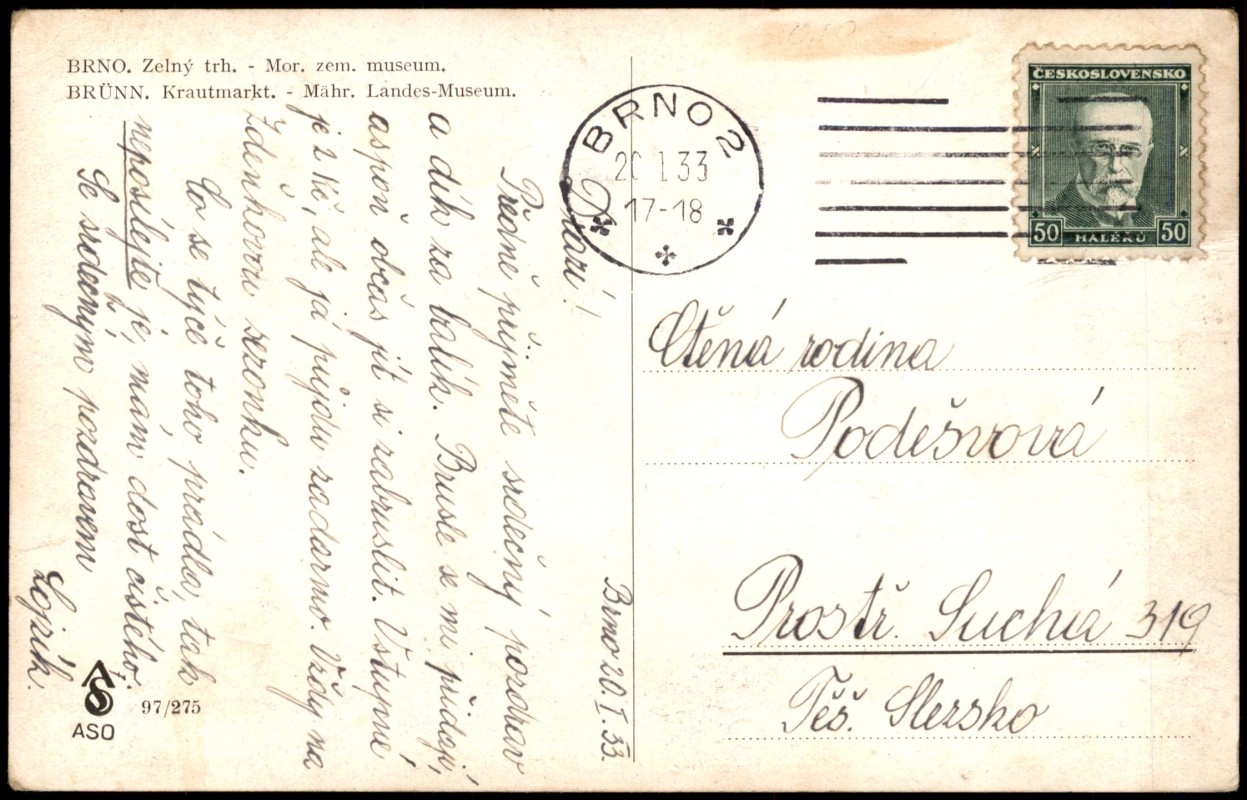 BRNO. Zelný trh. - Mor. zem. museum.
BRÜNN. Krautmarkt. - Mähr. Landes-Museum.
BRNO 2
20 I 33
17-18
ČESKOSLOVENSKO
50 HALÉŘŮ 50
Brno 20. I. 33.
Drazí!
Předně přijměte srdečný pozdrav
a dík za balík. Brusle se mi přidají,
aspoň občas jít si zabruslit. Vstupné
je 2 Kč, ale já půjdu zadarmo. Vždy na
Zdeňkovou sezonku.
Co se týče toho prádla, tak
neposílejte je, mám dost čistého.
Se srdečným pozdravem
Lojzík.
Ctěná rodina
Poděšvová
Prostř. Suchá 319
Těš. Slezsko
ASO
97/275